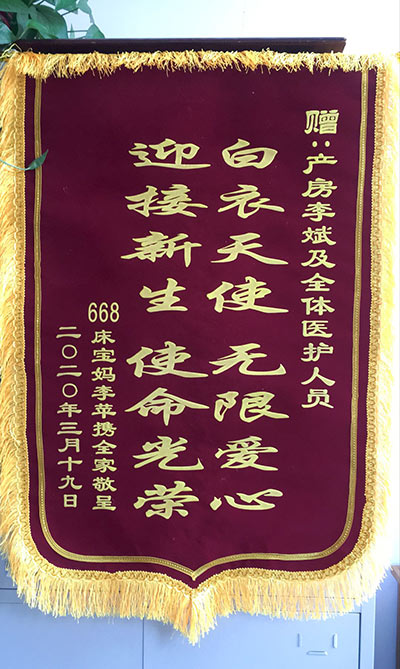 赠:产房李斌及全体医护人员
白衣天使 无限爱心
迎接新生 使命光荣
668床宝妈李苹携全家敬呈
二〇二〇年三月十九日